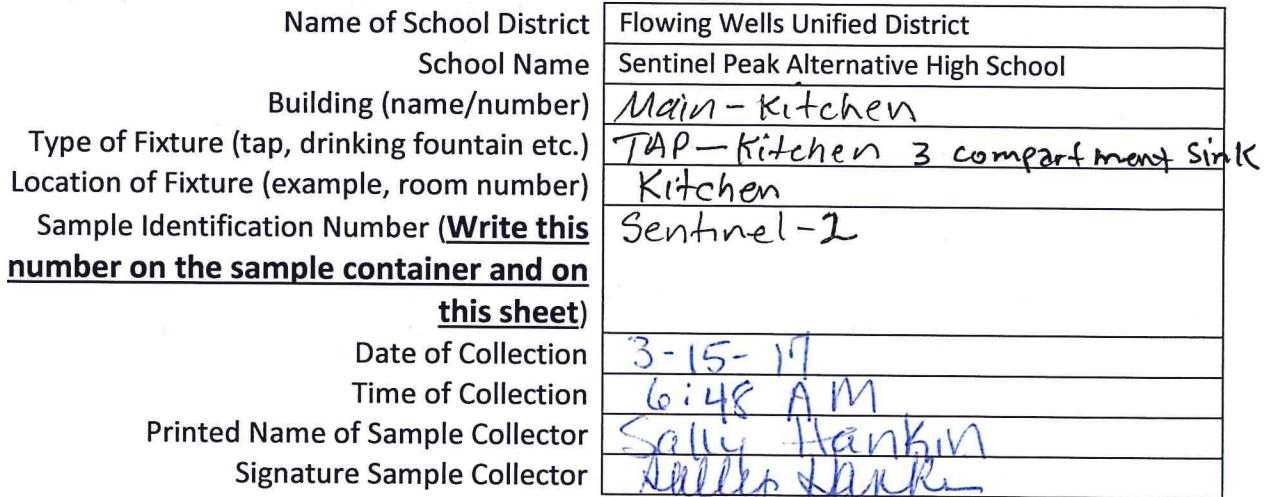 Name of School District Flowing Wells Unified District
School Name Sentinel Peak Alternative High School
Building (name/number) Main - Kitchen
Type of Fixture (tap, drinking fountain etc.) TAP - Kitchen 3 compartment Sink
Location of Fixture (example, room number) Kitchen
Sample Identification Number (Write this Sentinel-2
number on the sample container and on
this sheet)
Date of Collection 3-15-17
Time of Collection 6:48 AM
Printed Name of Sample Collector Sally Hankin
Signature Sample Collector